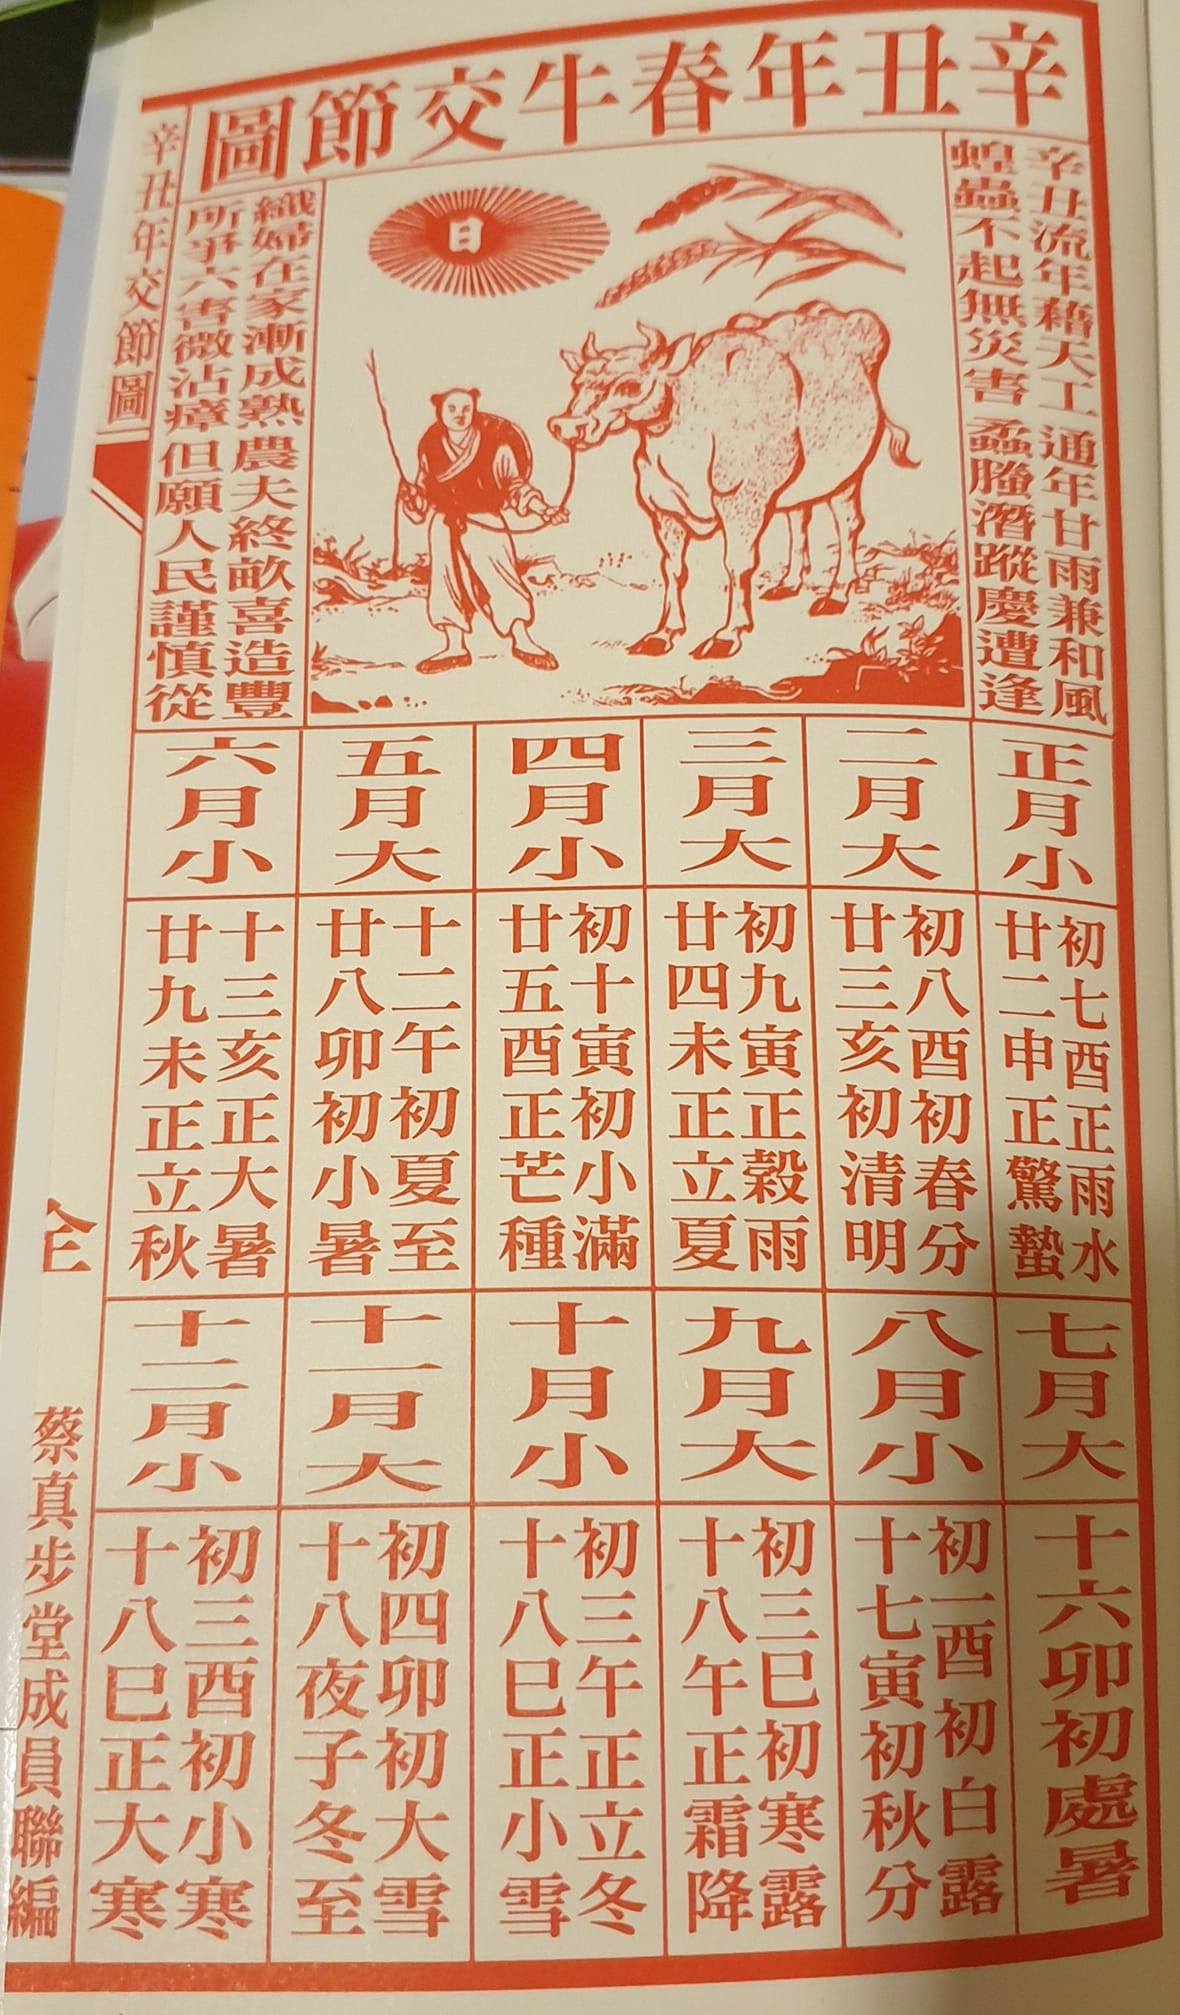 辛丑年春牛交節圖
辛丑流年藉天工 通年甘雨兼和風
蝗蟲不起無災害 蟊螣潛蹤慶遭逢
織婦在家漸成熟 農夫終畝喜造豐
所爭六害微沾瘴 但願人民謹慎從
日
辛丑年交節圖
正月小
初七酉正雨水
廿二申正驚蟄
二月大
初八酉初春分
廿三亥初清明
三月大
初九寅正穀雨
廿四未正立夏
四月小
初十寅初小滿
廿五酉正芒種
五月大
十二午初夏至
廿八卯初小暑
六月小
十三亥正大暑
廿九未正立秋
七月大
十六卯初處暑
八月小
初一酉初白露
十七寅初秋分
九月大
初三巳初寒露
十八午正霜降
十月小
初三午正立冬
十八巳正小雪
十一月大
初四卯初大雪
十八夜子冬至
十二月小
初三酉初小寒
十八巳正大寒
全
蔡真步堂成員聯編